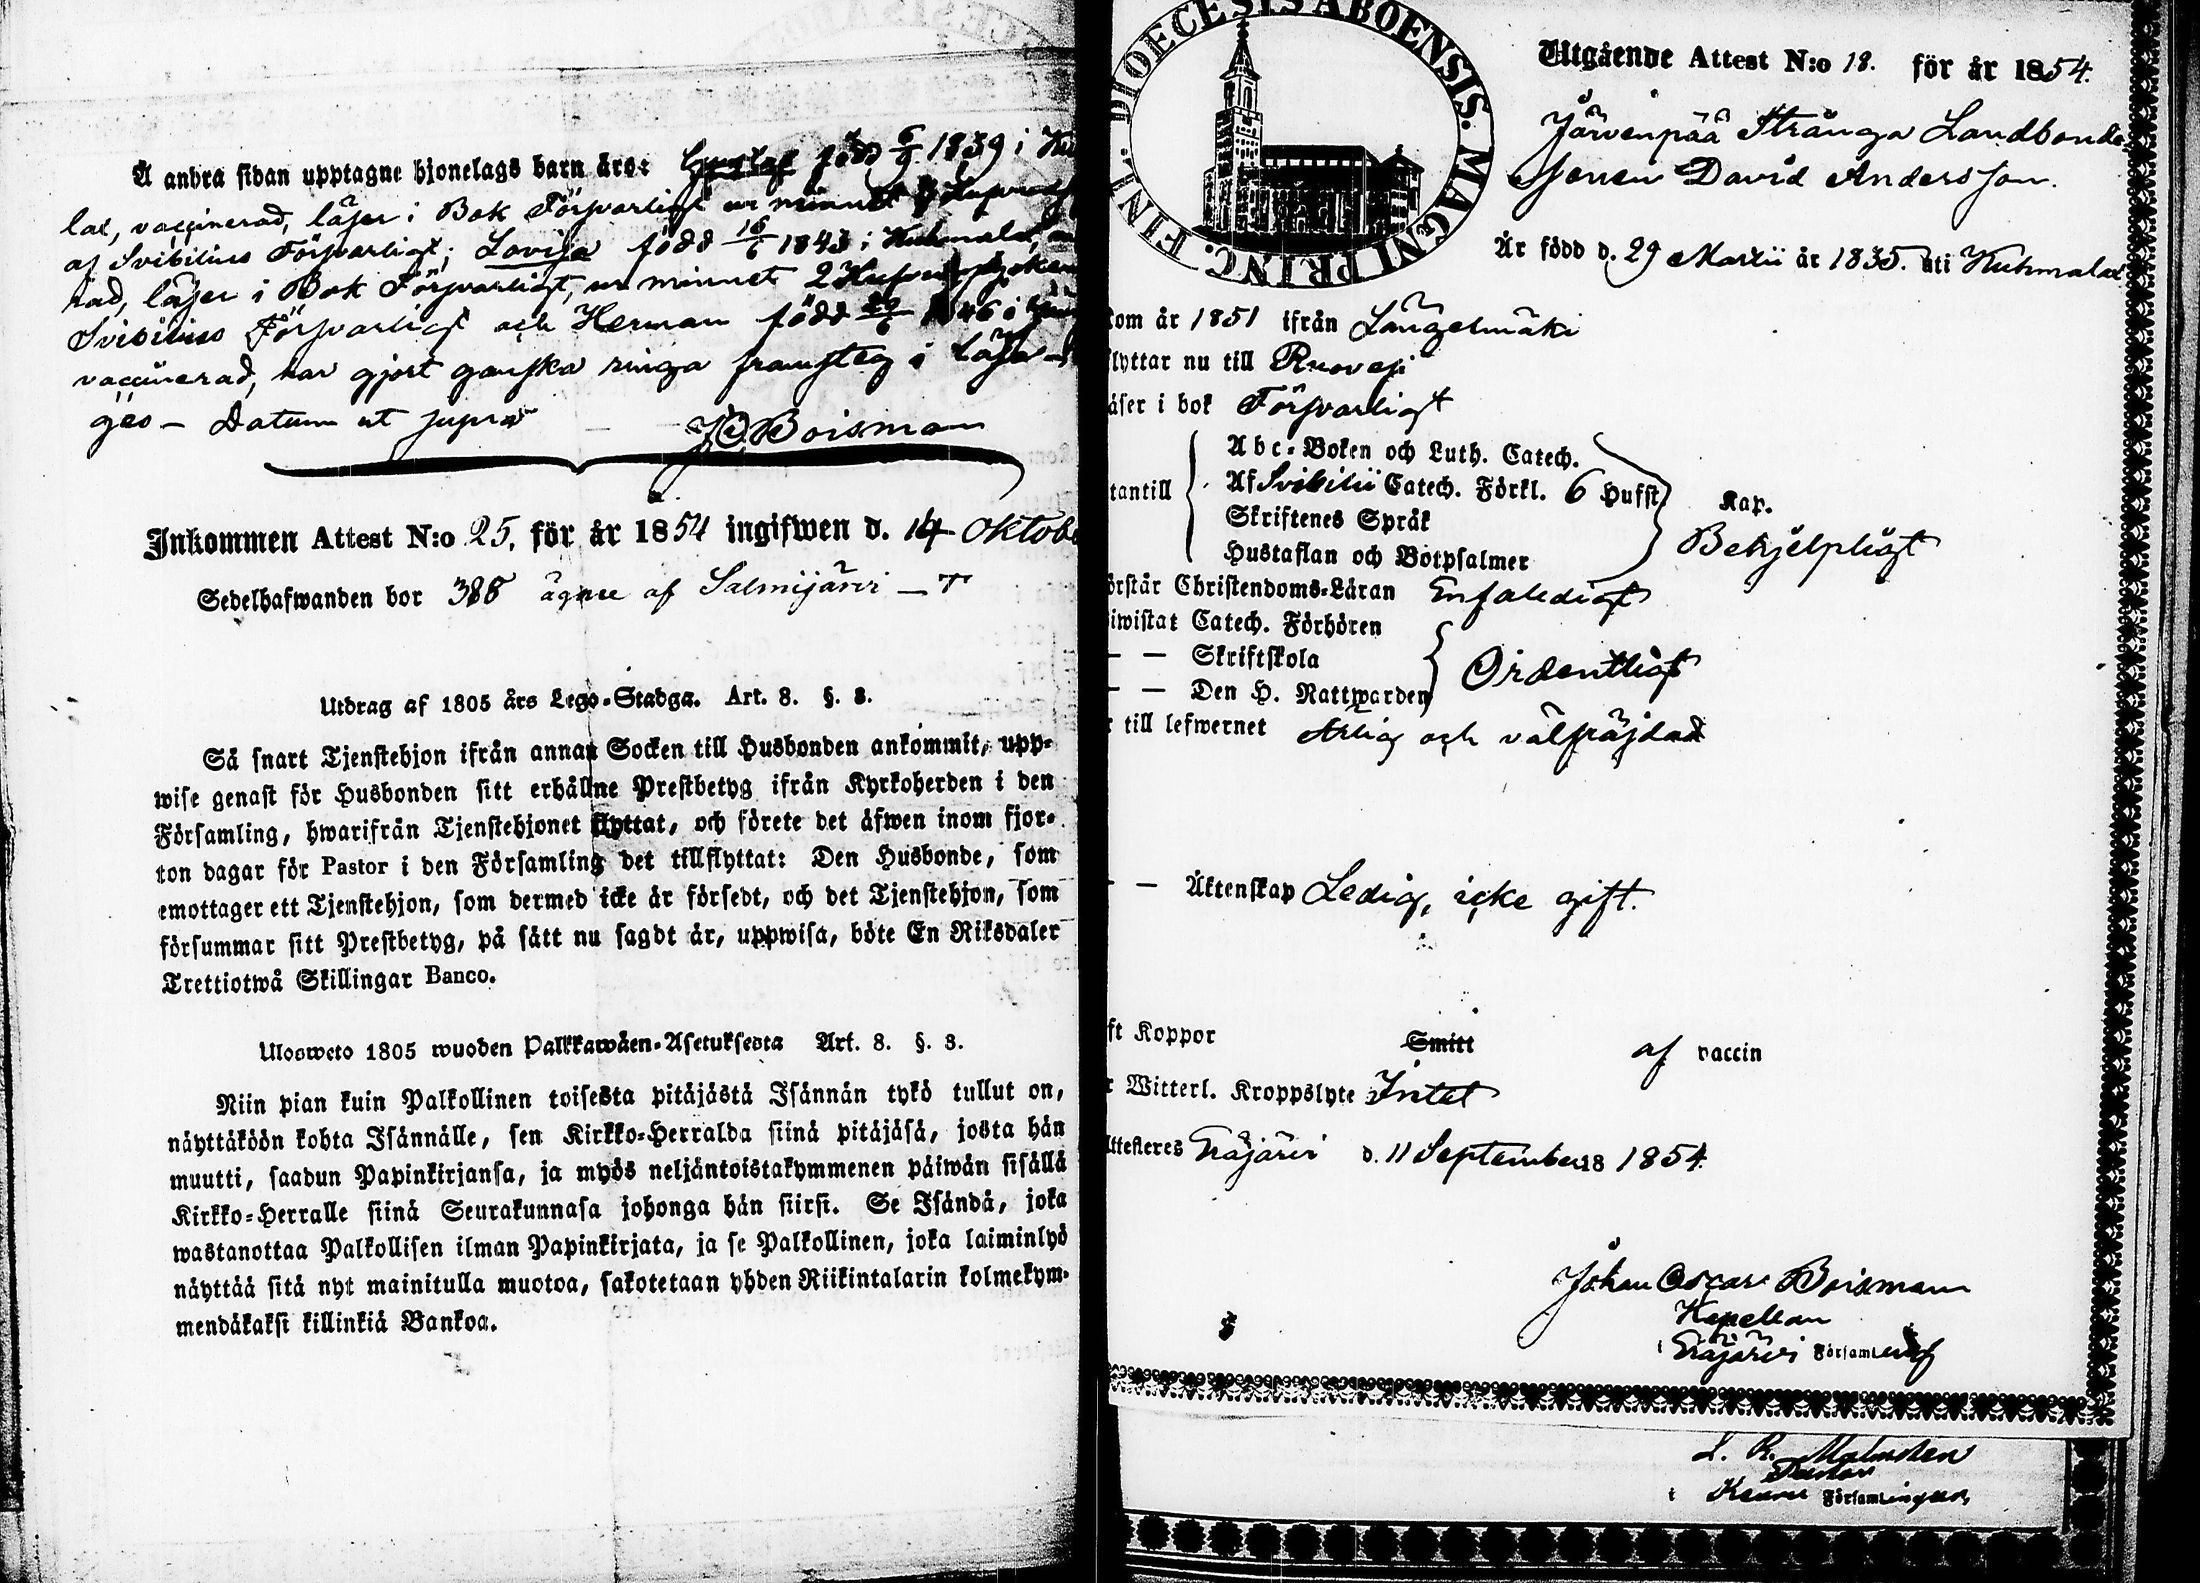 Å andra sidan upptagne hjonelags barn äro: Gustaf född 6/9 1839 i
lax, vaccinerad, läser i Bok Försvarligt, ur minnet
af Svibilius Försvarligt; Lovisa född 16/6 1843 i Kuhmalax,
rad, läser i Bok Försvarligt, ur minnet 2 Hufvudstycken
Svibilius Försvarligt och Herman född 29/6 1846 i
vaccinerad, har gjort ganska ringa framsteg i läs
Datum ut supra
J O Boisman
Inkommen Attest N:o 25, för år 1854 ingifwen d. 14 Oktob
Sedelhafwanden bor ägare af Salmijärvi
Utdrag af 1805 års Lego-Stadga. Art. 8. §. 3.
Så snart Tjenstehjon ifrån annan Socken till Husbonden ankommit, upp-
wise genast för Husbonden sitt erhållne Prestbetyg ifrån Kyrkoherden i den
Församling, hwarifrån Tjenstehjonet flyttat, och förete det äfwen inom fjor-
ton dagar för Pastor i den Församling det tillflyttat: Den Husbonde, som
emottager ett Tjenstehjon, som dermed icke är försedt, och det Tjenstehjon, som
försummar sitt Prestbetyg, på sätt nu sagdt är, uppwisa, böte En Riksdaler
Trettiotwå Skillingar Banco.
Ulosweto 1805 wuoden Palkkawäen-Asetuksesta Art. 8. §. 3.
Niin pian kuin Palkollinen toisesta pitäjästä Isännän tykö tullut on,
näyttäköön kohta Isännälle, sen Kirkko-Herralda siinä pitäjäsä, josta hän
muutti, saadun Papinkirjansa, ja myös neljäntoistakymmenen päiwän sisällä
Kirkko-Herralle siinä Seurakunnasa johonga hän siirsi. Se Isändä, joka
wastanottaa Palkollisen ilman Papinkirjata, ja se Palkollinen, joka laiminlyö
näyttää sitä nyt mainitulla muotoa, sakotetaan yhden Riikintalarin kolmekym-
mendäkaksi killinkiä Bankoa.
DIOECESIS ABOENSIS. MAGNI PRINC. FINL.
Utgående Attest N:o 18. för år 1854.
Järvenpää Stränga Landbonde
Sonen David Andersson.
Är född d. 29 Martii år 1835. uti Kuhmalax
kom år 1851 ifrån Längelmäki
flyttar nu till Ruovesi
läser i bok Försvarligt
Abc-Boken och Luth. Catech.
utantill Af Svibilii Catech. Förkl. 6 Hufst. Kap.
Skriftenes Språk
Bekjelpligt
Hustaflan och Botpsalmer
örstår Christendoms-Läran Enfaledigt
iwistat Catech. Förhören
— — Skriftskola
Ordentligt
— — Den H. Nattwarden
r till lefwernet Ärlig och välfräjdad
— — Äktenskap Ledig, icke gift.
ft Koppor Smitt af vaccin
r Witterl. Kroppslyte Intet
Attesteres Eräjärvi d. 11 September 18 1854.
Johan Oscar Boisman
Kapellan
i Eräjärvi Församling
L. R. Malmsten
Pastor
i Keuru Församlingar,